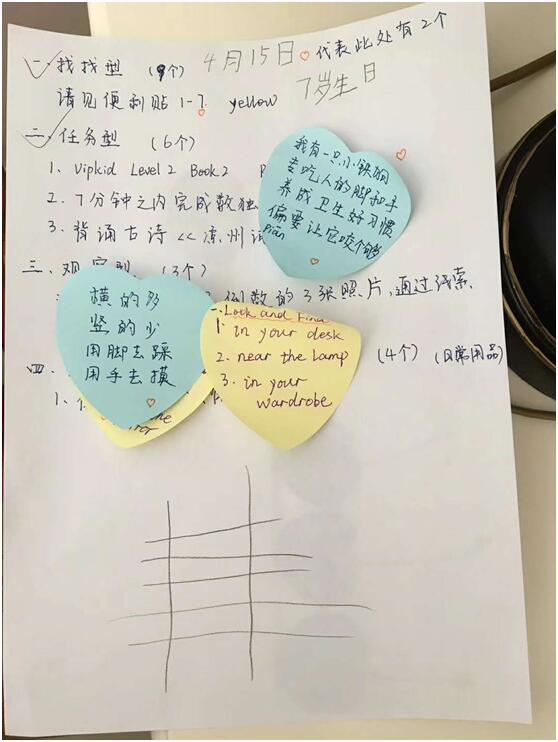 一、找找型 (9个) 4月15日 代表此处有2个
请见便利贴 1-7. yellow 7岁生日
二、任务型 (6个)
1、Vipkid Level 2 Book 2
2、7分钟之内完成数独
3、背诵古诗<<凉州
我有一只小铁狗
专吃人的脚和手
养成卫生好习惯
偏要让它咬个够
pian
三、观察型 (3个)
例数的3张照片,通过线索,
横的多
竖的少
用脚去踩
用手去摸
一、Look and Find
1. in your desk
2. near the lamp
3. in your
wardrobe
四、 (4个) (日常用品)
1、